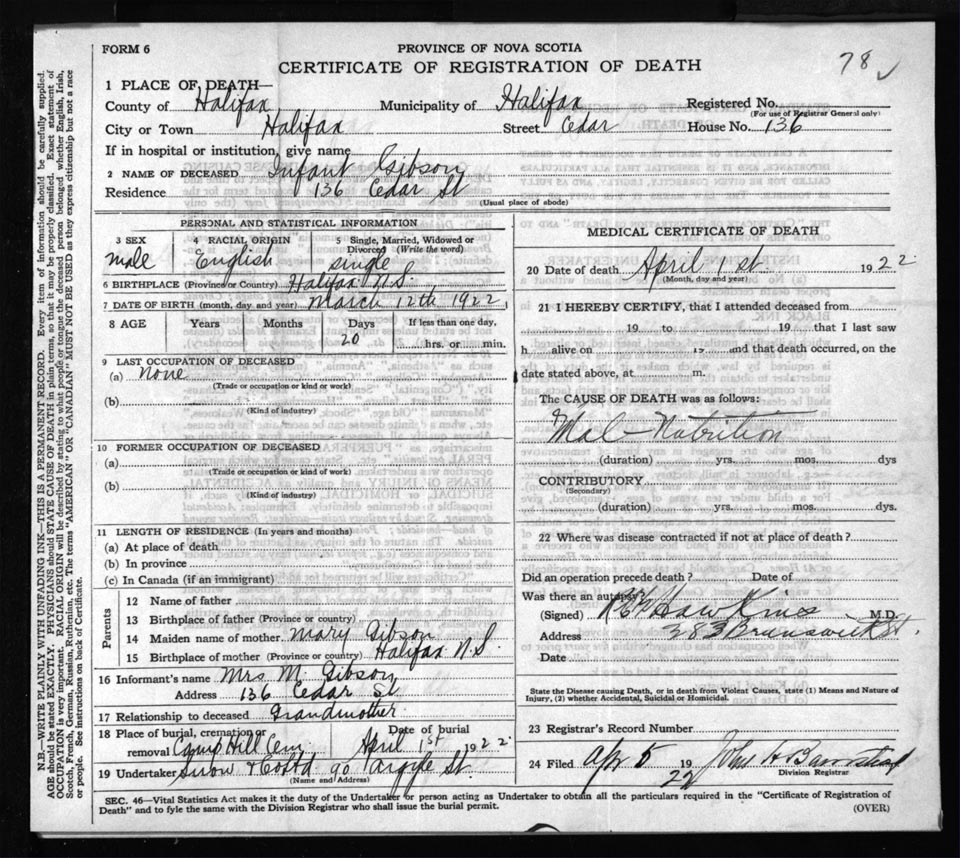 FORM 6
PROVINCE OF NOVA SCOTIA
CERTIFICATE OF REGISTRATION OF DEATH
78
1 PLACE OF DEATH—
County of Halifax Municipality of Halifax Registered No.
(For use of Registrar General only)
City or Town Halifax Street Cedar House No. 136
If in hospital or institution, give name
2 NAME OF DECEASED Infant Gibson
Residence 136 Cedar St
(Usual place of abode)
PERSONAL AND STATISTICAL INFORMATION
3 SEX 4 RACIAL ORIGIN 5 Single, Married, Widowed or Divorced (Write the word)
male English single
6 BIRTHPLACE (Province or Country) Halifax N.S.
7 DATE OF BIRTH (month, day and year) March 12th 1922
8 AGE Years Months Days If less than one day,
20 hrs. or min.
9 LAST OCCUPATION OF DECEASED
(a) None
(Trade or occupation or kind of work)
(b)
(Kind of industry)
10 FORMER OCCUPATION OF DECEASED
(a)
(Trade or occupation or kind of work)
(b)
(Kind of industry)
11 LENGTH OF RESIDENCE (In years and months)
(a) At place of death
(b) In province
(c) In Canada (if an immigrant)
Parents
12 Name of father
13 Birthplace of father (Province or country)
14 Maiden name of mother Mary Gibson
15 Birthplace of mother (Province or country) Halifax N.S.
16 Informant's name Mrs M. Gibson
Address 136 Cedar St
17 Relationship to deceased Grandmother
18 Place of burial, cremation or removal Camp Hill Cem. Date of burial April 1st 1922
19 Undertaker 90 Argyle St.
(Name and Address)
MEDICAL CERTIFICATE OF DEATH
20 Date of death April 1st. 1922
(Month, day and year)
21 I HEREBY CERTIFY, that I attended deceased from
19 to 19 that I last saw
h alive on 19 and that death occurred, on the
date stated above, at m.
The CAUSE OF DEATH was as follows:
Mal-Nutrition
(duration) yrs. mos. dys
CONTRIBUTORY
(Secondary)
(duration) yrs. mos. dys.
22 Where was disease contracted if not at place of death?
Did an operation precede death? Date of
Was there an autopsy
(Signed) Hawkins M.D.
Address 283 Brunswick St.
Date
State the Disease causing Death, or in death from Violent Causes, state (1) Means and Nature of
Injury, (2) whether Accidental, Suicidal or Homicidal.
23 Registrar's Record Number
24 Filed Apr 5 1922 John
Division Registrar
SEC. 46—Vital Statistics Act makes it the duty of the Undertaker or person acting as Undertaker to obtain all the particulars required in the "Certificate of Registration of
Death" and to fyle the same with the Division Registrar who shall issue the burial permit.
(OVER)
N.B.—WRITE PLAINLY WITH UNFADING INK—THIS IS A PERMANENT RECORD. Every item of information should be carefully supplied.
AGE should be stated EXACTLY. PHYSICIANS should STATE CAUSE OF DEATH in plain terms, so that it may be properly classified. Exact statement of
OCCUPATION is very important. RACIAL ORIGIN will be described by stating to what people or tongue the deceased person belonged whether English, Irish,
Scotch, French, German, Russian, Ruthenian, etc. The terms "AMERICAN" OR "CANADIAN" MUST NOT BE USED as they express citizenship but not a race
or people. See instructions on back of Certificate.